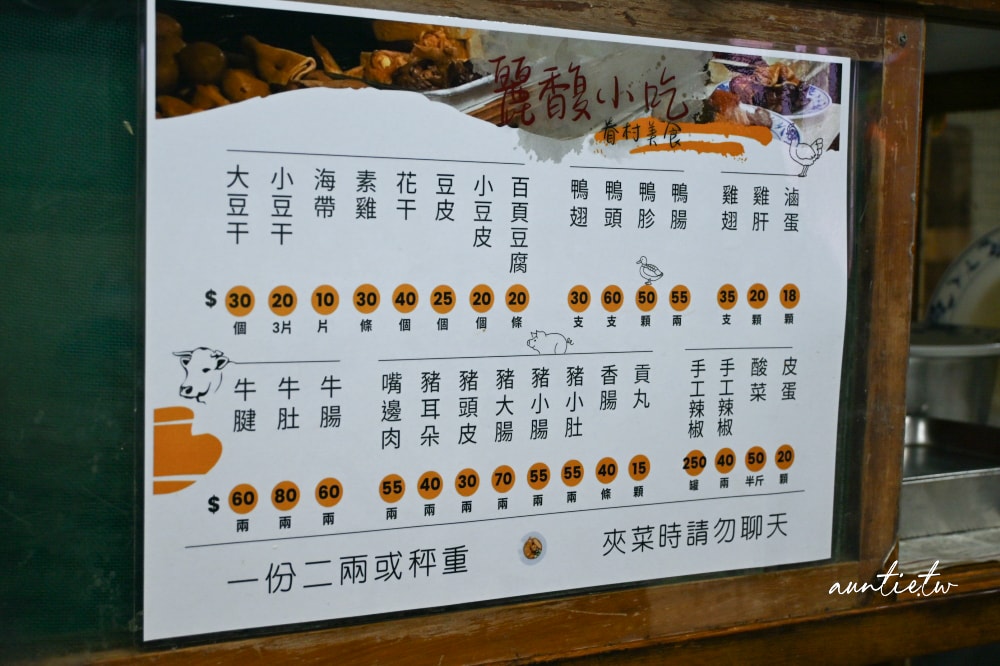 麗馥小吃
眷村美食
大豆干 小豆干 海帶 素雞 花干 豆皮 小豆皮 百頁豆腐 鴨翅 鴨頭 鴨胗 鴨腸 雞翅 雞肝 滷蛋
$ 30 20 10 30 40 25 20 20 30 60 50 55 35 20 18
個 3片 片 條 個 個 個 條 支 支 顆 兩 支 顆 顆
牛腱 牛肚 牛腸 嘴邊肉 豬耳朵 豬頭皮 豬大腸 豬小腸 豬小肚 香腸 貢丸 手工辣椒 手工辣椒 酸菜 皮蛋
$ 60 80 60 55 40 30 70 55 55 40 15 250 40 50 20
兩 兩 兩 兩 兩 兩 兩 兩 兩 條 顆 罐 兩 半斤 顆
一份二兩或秤重 夾菜時請勿聊天
auntie.tw